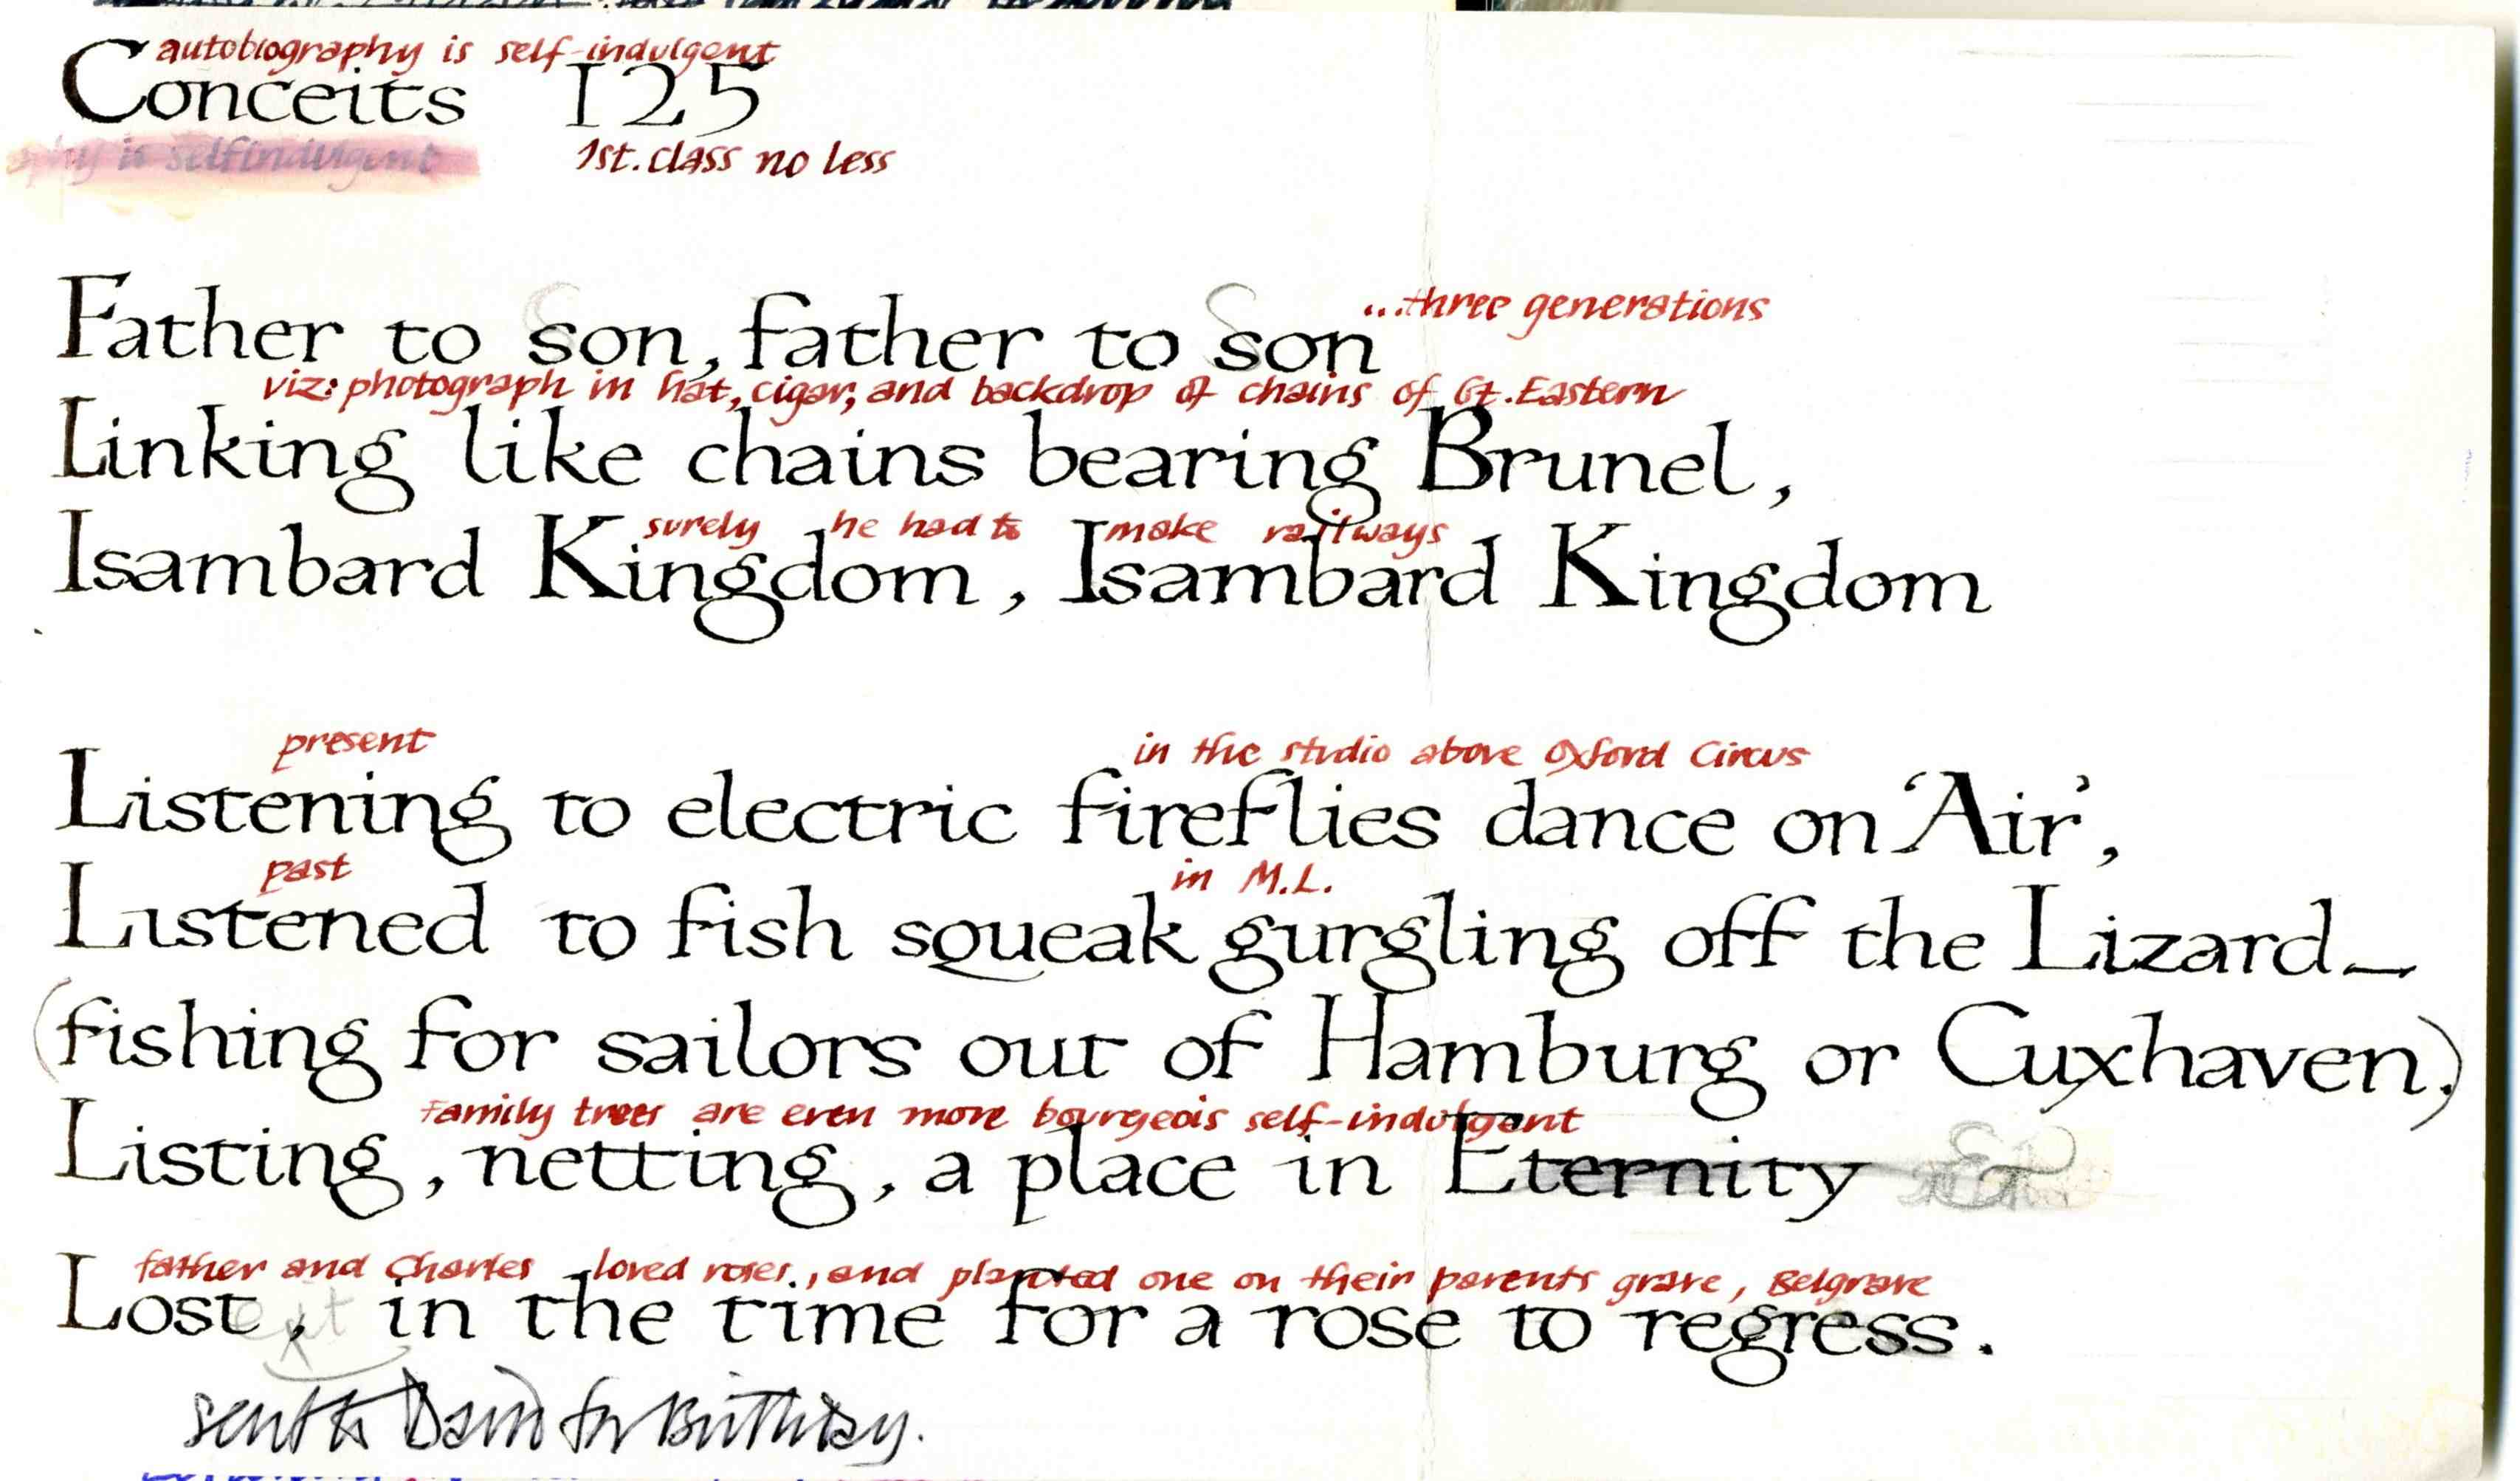 autobiography is self-indulgent
Conceits 125
phy is selfindulgent
1st. class no less
...three generations
Father to son, father to son
viz: photograph in hat, cigar, and backdrop of chains of Gt. Eastern
Linking like chains bearing Brunel,
surely he had to make railways
Isambard Kingdom, Isambard Kingdom
present in the studio above Oxford Circus
Listening to electric fireflies dance on 'Air',
past in M.L.
Listened to fish squeak gurgling off the Lizard—
(fishing for sailors out of Hamburg or Cuxhaven.)
Family trees are even more bourgeois self-indulgent
Listing, netting, a place in Eternity
father and Charles loved roses., and planted one on their parents grave, Belgrave
Lost, in the time for a rose to regress.
sent to David for Birthday.